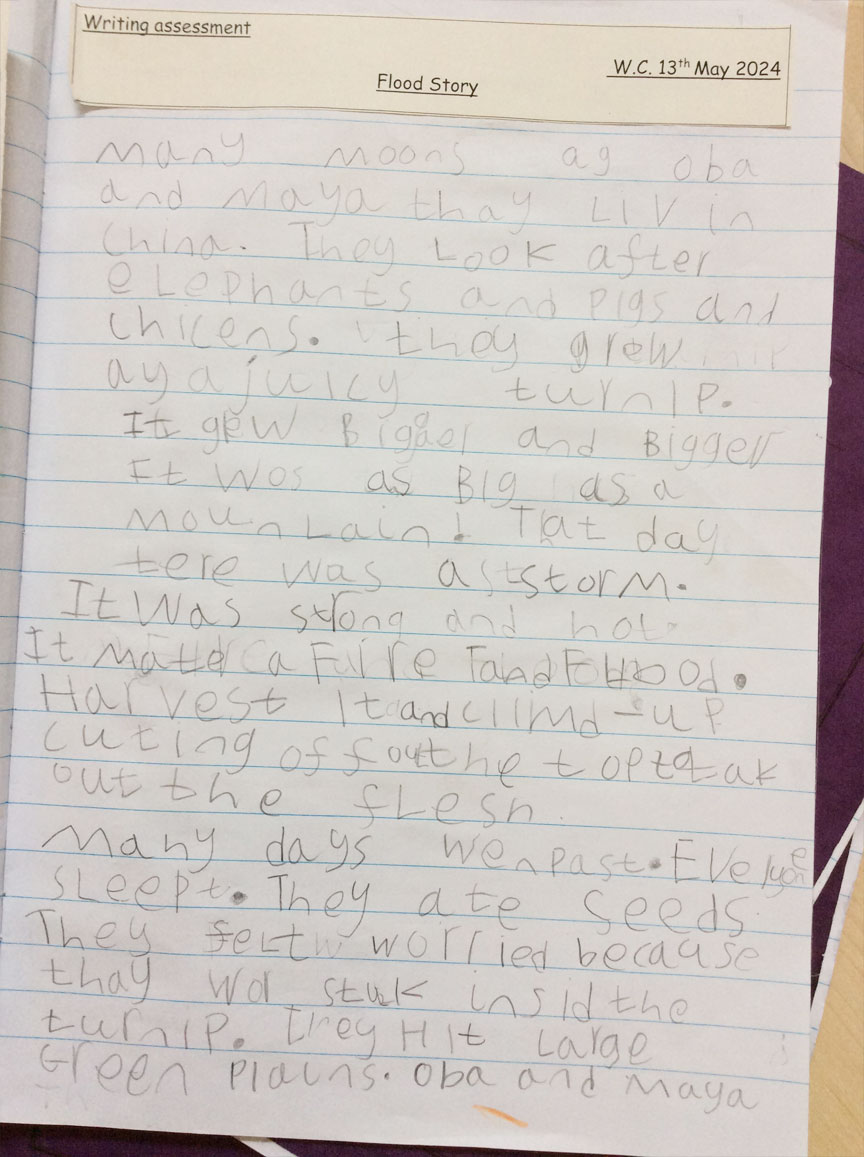 Writing assessment
W.C. 13th May 2024
Flood Story
Many moons ag oba
and Maya thay LIV in
China. They Look after
eLephants and pigs and
chicens. they grew
a juicy turnip.
It grew and Bigger
It Wos as BIg as a
mounLain! That day
tere was a storm.
It Was strong and hot.
It a Faire and
Harvest It and climd-up
cuting off the top to tak
out the fLesh.
Many days wen past. Everyone
sLeept. They ate Seeds
They feLt worried because
thay wor stuk insid the
turnip. They Hit Large
Green plains. Oba and Maya